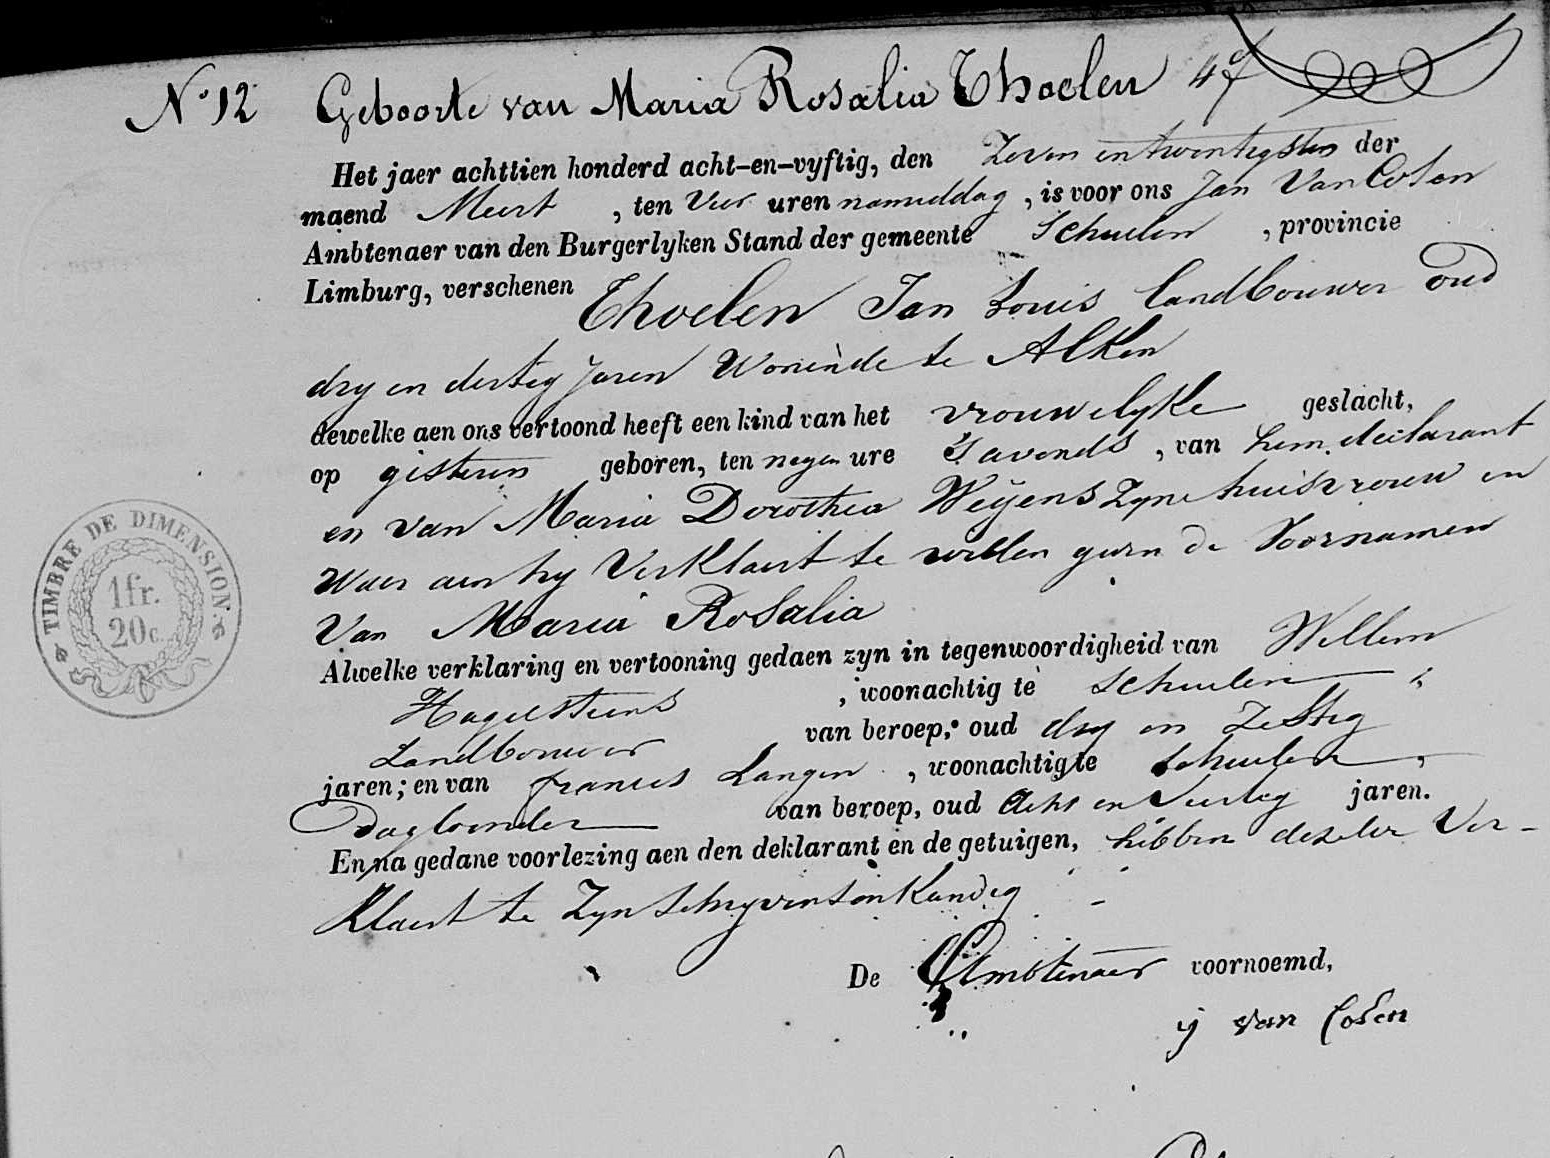 N° 12 Geboorte van Maria Rosalia Thoelen
Het jaer achttien honderd acht-en-vyftig, den Zeven en twentigsten der
maend Meert , ten Vier uren namiddag , is voor ons Jan Van Cosen
Ambtenaer van den Burgerlyken Stand der gemeente Schulen , provincie
Limburg, verschenen Thoelen Jan Louis landbouwer oud
dry en dertig jaren Wonende te Alken
dewelke aen ons vertoond heeft een kind van het vrouwelyke geslacht,
op gisteren geboren, ten negen ure s'avonds , van hem declarant
en van Maria Dorothea Weÿens Zyne huisvrouw en
Waer aen hy Verklaert te willen geven de Voornamen
Van Maria Rosalia
Alwelke verklaring en vertooning gedaen zyn in tegenwoordigheid van Willem
Hagelsteens , woonachtig te Schulen
Landbouwer van beroep, oud dry en Zestig
jaren; en van francis Langen , woonachtig te Schulen ,
Daglooner van beroep, oud Acht en Veertig jaren.
En na gedane voorlezing aen den deklarant en de getuigen, hebben deselve Ver-
Klaert te Zyn schryvens onkundig
De Ambtenaer voornoemd,
y van Cosen
TIMBRE DE DIMENSION.
1 fr.
20 c.